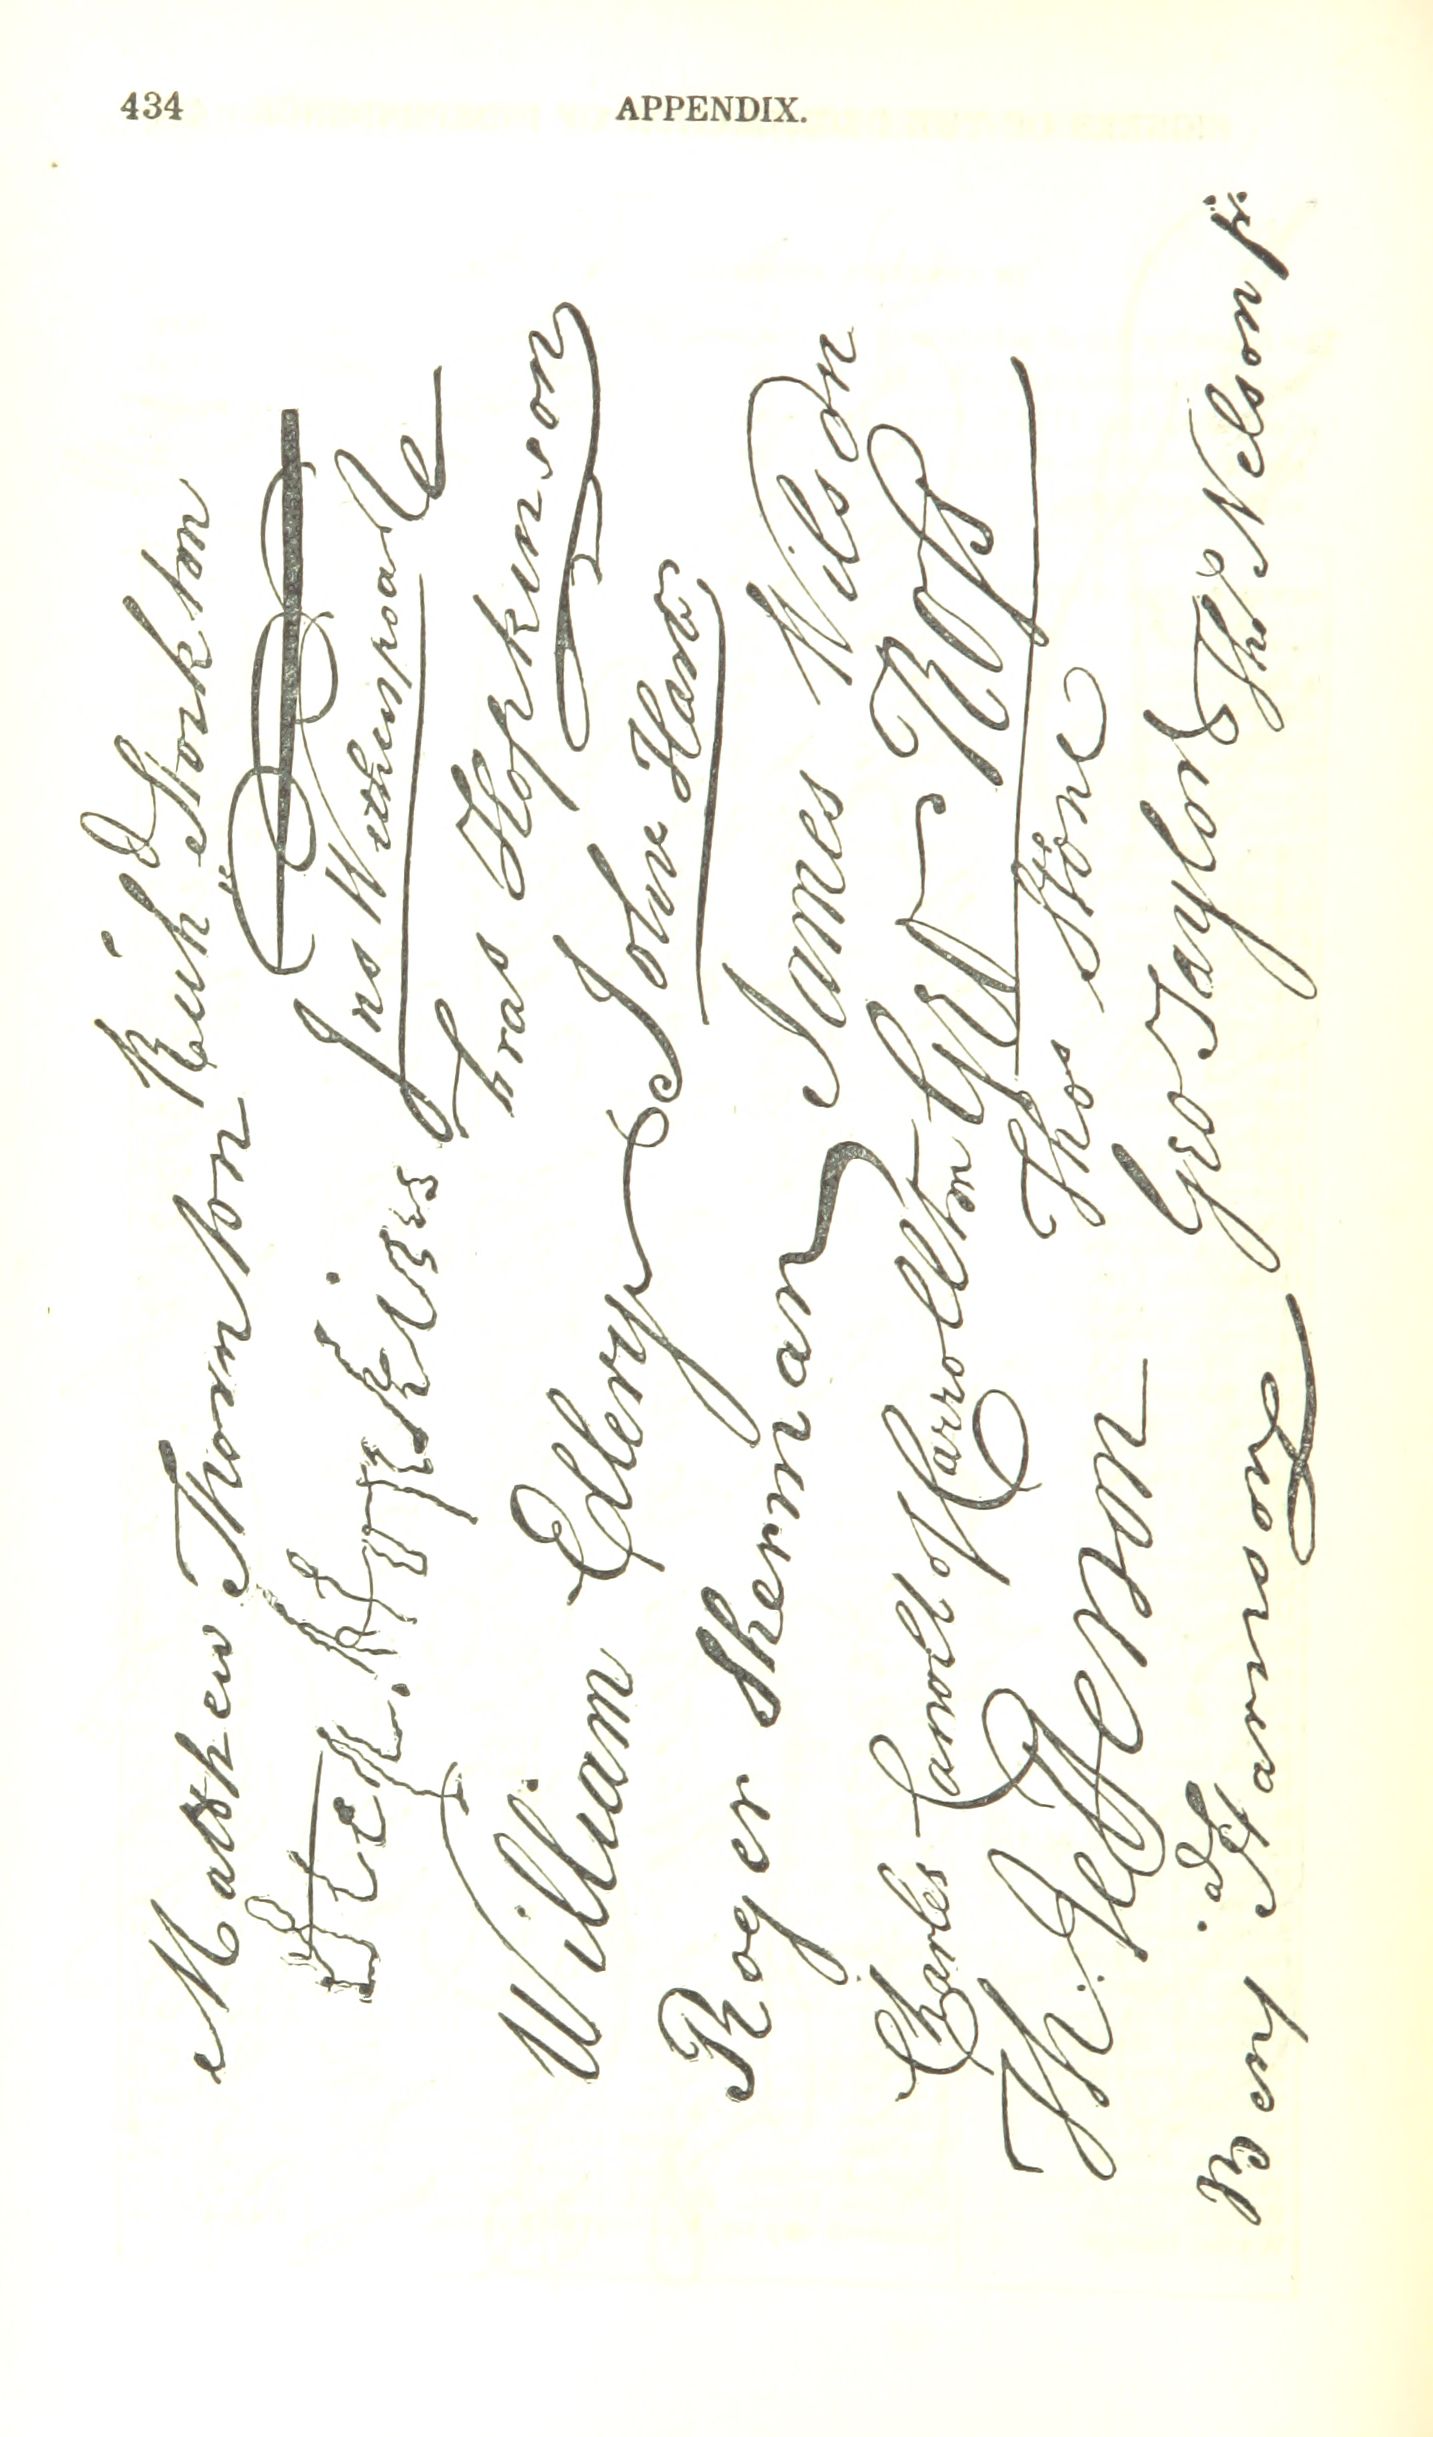 434 APPENDIX.
Matthew Thornton
Richd Stockton
Step. Hopkins
Jno Witherspoon
Fras Hopkinson
William Ellery
John Hart
Roger Sherman
James Wilson
Charles Carroll of Carrollton
Geo Ross
Th. Jefferson
Thos Stone
Benj Harrison
Geo Taylor
Thos Nelson jr.